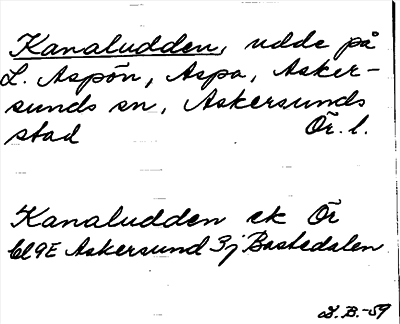 Kanaludden, udde på
L. Aspön, Aspa, Asker-
sunds sn, Askersunds
stad Ör. l.
Kanaludden ek Ör
9E Askersund 3j Bastedalen
D.B.-59